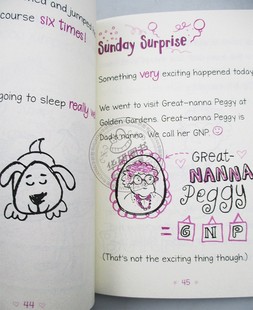 and jumped
course six times!
going to sleep really w
44
Sunday Surprise
Something very exciting happened today
We went to visit Great-nanna Peggy at
Golden Gardens. Great-nanna Peggy is
Dad's nanna. We call her GNP
GREAT-
NANNA
Peggy
= G N P
(That's not the exciting thing though.)
45